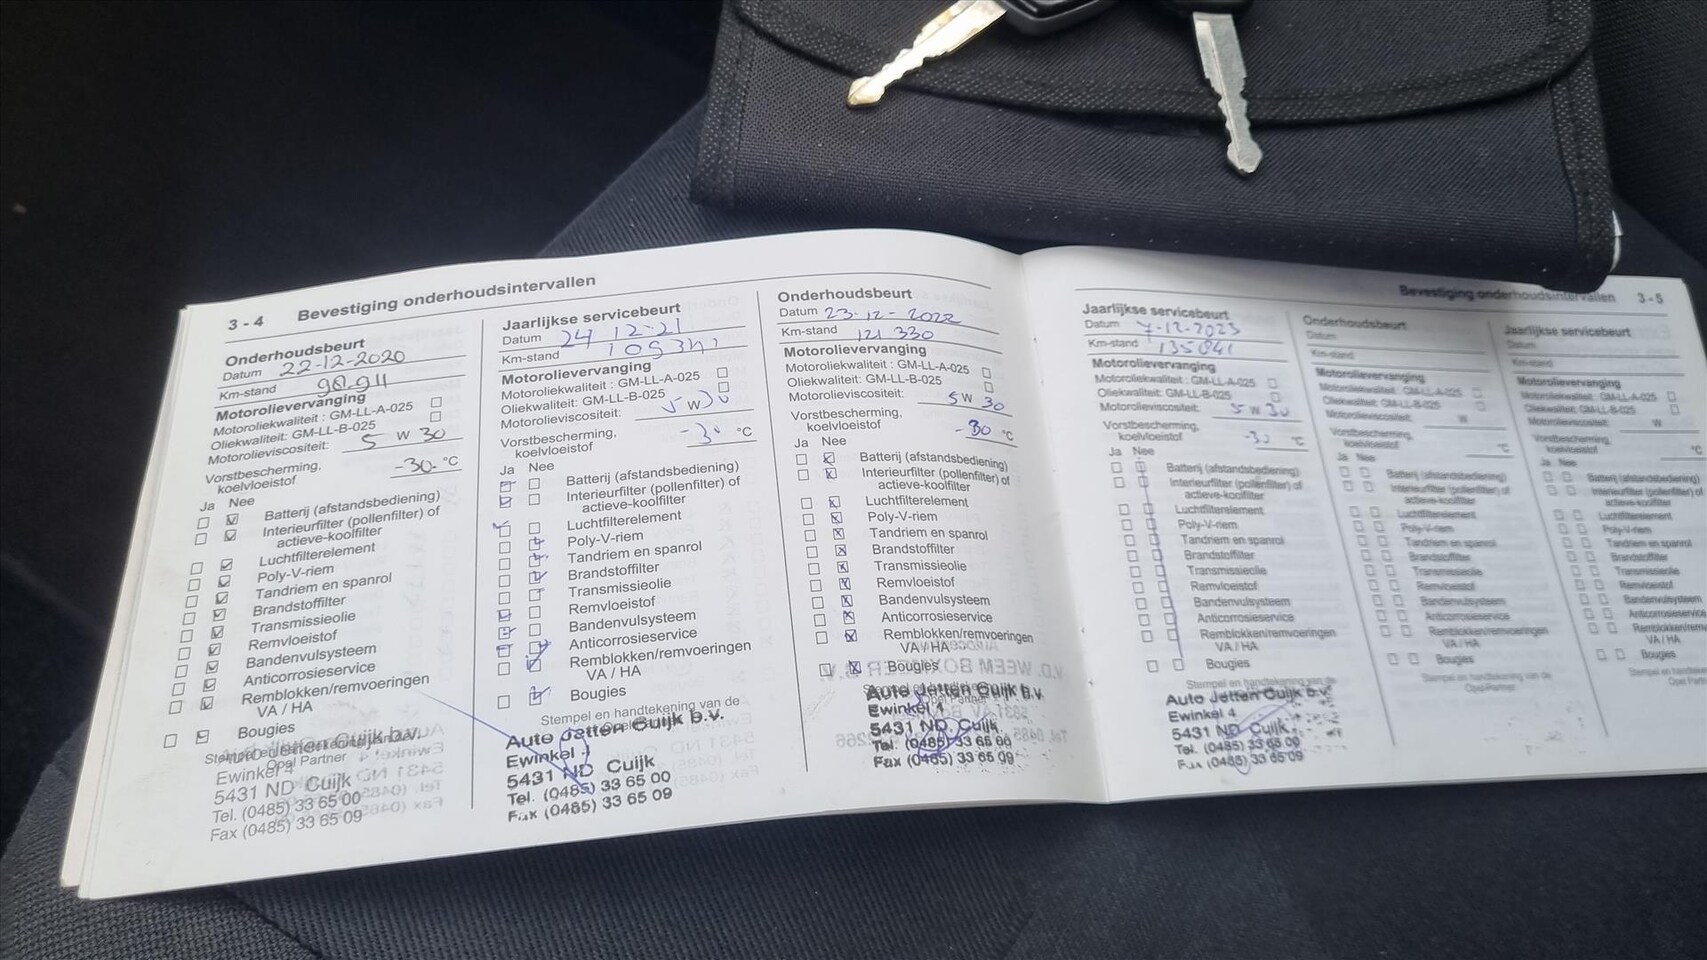 3 - 4 Bevestiging onderhoudsintervallen
Onderhoudsbeurt
Datum 22-12-2020
Km-stand
Motorolievervanging
Motoroliekwaliteit : GM-LL-A-025
Oliekwaliteit: GM-LL-B-025
Motorolieviscositeit: 5 W 30
Vorstbescherming,
koelvloeistof -30- °C
Ja Nee
Batterij (afstandsbediening)
Interieurfilter (pollenfilter) of
actieve-koolfilter
Luchtfilterelement
Poly-V-riem
Tandriem en spanrol
Brandstoffilter
Transmissieolie
Remvloeistof
Bandenvulsysteem
Anticorrosieservice
Remblokken/remvoeringen
VA / HA
Bougies
Opel Partner
Ewinkel 4
5431 ND Cuijk
Tel. (0485) 33 65 00
Fax (0485) 33 65 09
Jaarlijkse servicebeurt
Datum 24 12-21
Km-stand
Motorolievervanging
Motoroliekwaliteit : GM-LL-A-025
Oliekwaliteit: GM-LL-B-025
Motorolieviscositeit: 5 W 30
Vorstbescherming,
koelvloeistof -30 °C
Ja Nee
Batterij (afstandsbediening)
Interieurfilter (pollenfilter) of
actieve-koolfilter
Luchtfilterelement
Poly-V-riem
Tandriem en spanrol
Brandstoffilter
Transmissieolie
Remvloeistof
Bandenvulsysteem
Anticorrosieservice
Remblokken/remvoeringen
VA / HA
Bougies
Stempel en handtekening van de
Auto Jetten Cuijk b.v.
Ewinkel 4
5431 ND Cuijk
Tel. (0485) 33 65 00
Fax (0485) 33 65 09
Onderhoudsbeurt
Datum 23-12-2022
Km-stand 121 330
Motorolievervanging
Motoroliekwaliteit : GM-LL-A-025
Oliekwaliteit: GM-LL-B-025
Motorolieviscositeit: 5 W 30
Vorstbescherming,
koelvloeistof -30 °C
Ja Nee
Batterij (afstandsbediening)
Interieurfilter (pollenfilter) of
actieve-koolfilter
Luchtfilterelement
Poly-V-riem
Tandriem en spanrol
Brandstoffilter
Transmissieolie
Remvloeistof
Bandenvulsysteem
Anticorrosieservice
Remblokken/remvoeringen
VA / HA
Bougies
Auto Jetten Cuijk b.v.
Ewinkel 4
5431 ND Cuijk
Tel. (0485) 33 65 00
Fax (0485) 33 65 09
Bevestiging onderhoudsintervallen 3 - 5
Jaarlijkse servicebeurt
Datum 7-12-2023
Km-stand 135041
Motorolievervanging
Motoroliekwaliteit : GM-LL-A-025
Oliekwaliteit: GM-LL-B-025
Motorolieviscositeit: 5 W 30
Vorstbescherming,
koelvloeistof -30 °C
Ja Nee
Batterij (afstandsbediening)
Interieurfilter (pollenfilter) of
actieve-koolfilter
Luchtfilterelement
Poly-V-riem
Tandriem en spanrol
Brandstoffilter
Transmissieolie
Remvloeistof
Bandenvulsysteem
Anticorrosieservice
Remblokken/remvoeringen
VA / HA
Bougies
Stempel en handtekening van de
Auto Jetten Cuijk b.v.
Ewinkel 4
5431 ND Cuijk
Tel. (0485) 33 65 00
Fax (0485) 33 65 09
Onderhoudsbeurt
Datum
Km-stand
Motorolievervanging
Motoroliekwaliteit : GM-LL-A-025
Oliekwaliteit: GM-LL-B-025
Motorolieviscositeit: W
Vorstbescherming,
koelvloeistof °C
Ja Nee
Batterij (afstandsbediening)
Interieurfilter (pollenfilter) of
actieve-koolfilter
Luchtfilterelement
Poly-V-riem
Tandriem en spanrol
Brandstoffilter
Transmissieolie
Remvloeistof
Bandenvulsysteem
Anticorrosieservice
Remblokken/remvoeringen
VA / HA
Bougies
Stempel en handtekening van de
Opel-Partner
Jaarlijkse servicebeurt
Datum
Km-stand
Motorolievervanging
Motoroliekwaliteit : GM-LL-A-025
Oliekwaliteit: GM-LL-B-025
Motorolieviscositeit: W
Vorstbescherming,
koelvloeistof °C
Ja Nee
Batterij (afstandsbediening)
Interieurfilter (pollenfilter) of
actieve-koolfilter
Luchtfilterelement
Poly-V-riem
Tandriem en spanrol
Brandstoffilter
Transmissieolie
Remvloeistof
Bandenvulsysteem
Anticorrosieservice
VA / HA
Bougies